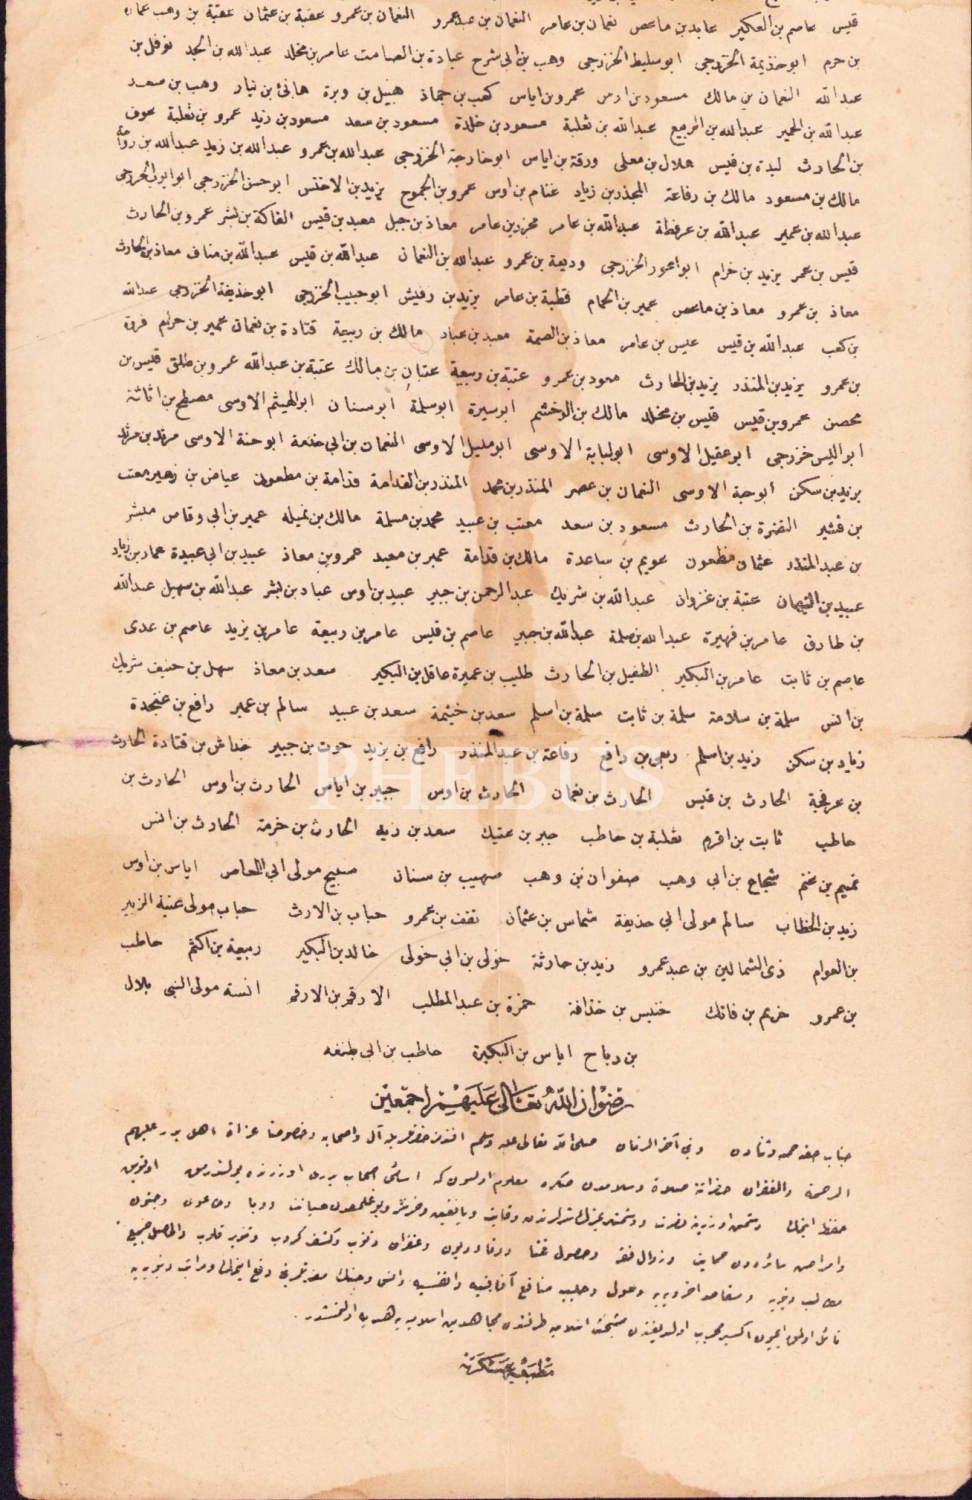 قيس عاصم بن العكير عابد بن ماعص نعمان بن عامر النعمان بن عبد عمرو النعمان بن عمرو عقبة بن عثمان عقبة بن وهب
بن حرم ابو خذيمة الخزرجى ابو سليط الخزرجى وهب بن ابى شرح عبادة بن الصامت عامر بن مخلد عبد الله بن الجد نوفل بن
عبد الله النعمان بن مالك مسعود بن اوس عمرو بن اياس كعب بن جماز هبيل بن وبرة هانئ بن نيار وهب بن سعد
عبد الله بن الحمير عبد الله بن الربيع عبد الله بن ثعلبة مسعود بن خلدة مسعود بن سعد مسعود بن زيد عمرو بن ثعلبة عوف
بن الحارث لبدة بن قيس هلال بن معلى ورقة بن اياس ابو خارجة الخزرجى عبد الله بن عمرو عبد الله بن زيد عبد الله بن رواحة
مالك بن مسعود مالك بن رفاعة المجذر بن زياد غنام بن اوس عمرو بن الجموح يزيد بن الاخنس ابو حسن الخزرجى ابو ايوب الخزرجى
عبد الله بن عمير عبد الله بن عرفطة عبد الله بن عامر محرز بن عامر معاذ بن جبل معبد بن قيس الفاكة بن بشر عمرو بن الحارث
قيس بن عمر يزيد بن خرام ابو اعور الخزرجى وديعة بن عمرو عبد الله بن النعمان عبد الله بن قيس عبد الله بن مناف معاذ بن الحارث
معاذ بن عمرو معاذ بن ماعص عمير بن الحمام قطبة بن عامر يزيد بن رقيش ابو حبيب الخزرجى ابو خذيفة الخزرجى عبد الله
بن كعب عبد الله بن قيس عبس بن عامر معاذ بن الصمة معبد بن عباد مالك بن ربيعة قتادة بن نعمان عمير بن حرام فروة
بن عمرو يزيد بن المنذر يزيد بن الحارث معود بن عمرو عتبة بن ربيعة عتبان بن مالك عتبة بن عبد الله عمرو بن طلق قيس بن
محصن عمرو بن قيس قيس بن مخلد مالك بن الدخشم ابو سبرة ابو سلمة ابو سنان ابو الهيثم الاوسى مصطح بن اثاثة
ابو اليس خزرجى ابو عقيل الاوسى ابو لبابة الاوسى ابو مليل الاوسى النعمان بن ابى خذمة ابو حنة الاوسى مرثد بن مرثد
يزيد بن سكن ابو حبة الاوسى النعمان بن عصر المنذر بن محمد المنذر بن القدامة قدامة بن مظعون عياض بن زهير معتب
بن قشير النضرة بن الحارث مسعود بن سعد معتب بن عبيد محمد بن مسلمة مالك بن نميلة عمير بن ابى وقاص مبشر
بن عبد المنذر عثمان مظعون عويم بن ساعدة مالك بن قدامة عمير بن معبد عمرو بن معاذ عبيد بن ابى عبيدة عمار بن زياد
عبيد بن التيهان عتبة بن غزوان عبد الله بن شريك عبد الرحمن بن جبر عبيد بن اوس عباد بن بشر عبد الله بن سهيل عبد الله
بن طارق عامر بن فهيرة عبد الله بن سلمة عبد الله بن جبير عاصم بن قيس عامر بن ربيعة عامر بن يزيد عاصم بن عدى
عاصم بن ثابت عامر بن البكير الطفيل بن الحارث طليب بن عميرة عاقل بن البكير سعد بن معاذ سهل بن حنيف شريك
بن انس سلمة بن سلامة سلمة بن ثابت سلمة بن اسلم سعد بن خيثمة سعد بن عبيد سالم بن عمير رافع بن عنجدة
زياد بن سكن زيد بن اسلم ربعى بن رافع رفاعة بن عبد المنذر رافع بن يزيد خوت بن جبير خداش بن قتادة الحارث
بن عرفجة الحارث بن قيس الحارث بن نعمان الحارث بن اوس جبير بن اياس الحارث بن اوس الحارث بن
حاطب ثابت بن اقرم ثعلبة بن حاطب جبر بن عتيك سعد بن زيد الحارث بن خزمة الحارث بن انس
تميم بن غنم شجاع بن ابى وهب صفوان بن وهب صهيب بن سنان صبيح مولى ابى العاص اياس بن اوس
زيد بن الخطاب سالم مولى ابى حذيفة شماس بن عثمان ثقف بن عمرو خباب بن الارث خباب مولى عتبة الزبير
بن العوام ذى الشمالين بن عبد عمرو زيد بن حارثة خولى بن ابى خولى خالد بن البكير ربيعة بن اكثم حاطب
بن عمرو خريم بن فاتك خنيس بن خذافة حمزة بن عبد المطلب الارقم بن الارقم انسة مولى النبى بلال
بن رباح اياس بن البكيرة حاطب بن ابى بلتعه
رضوان الله تعالى عليهم اجمعين
جناب حقه حمد وثنادن ونبى آخر الزمان صلى الله تعالى عليه وسلم افندمز حضرتلريله آل واصحابه وخصوصا غزاة اهل بدر عليهم
الرحمة والغفران حضراتنه صلاة وسلامدن صكره معلوم اولسون كه اسامئ اصحاب بدرى اوزرنده
حفظ ايتمك
PHEBUS
وامراض سائره دن حمايت وزوال فقر وحصول غنا
مطالب دنيويه ومقاصد اخرويه يه وصول وجلب منافع آفاقيه وانفسيه
نائل اولمق ايچون اكسير مجرب اولديغندن مشيخت اسلاميه طرفندن مجاهدين اسلاميه يه هديه اولنمشدر.
مطبعۀ عسكريه